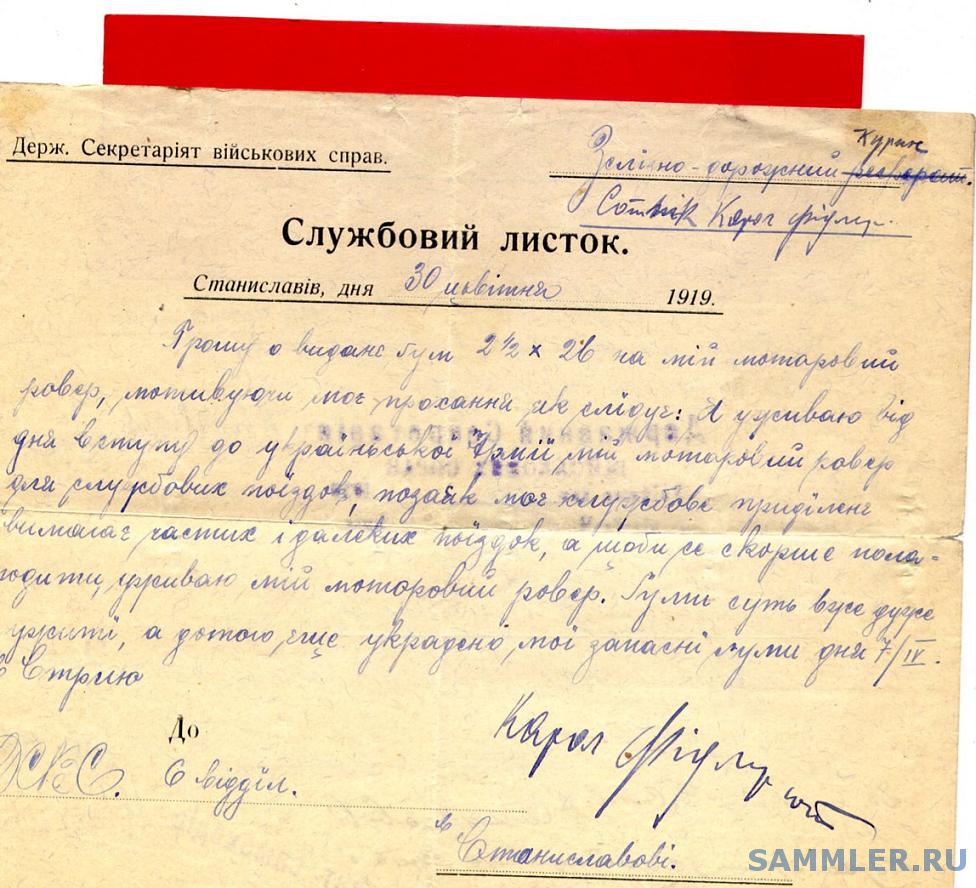 Держ. Секретаріят військових справ.
Курінь
Зелізно-дорожний реферат.
Сотник Кароль Фідлер
Службовий листок.
Станиславів, дня 30 цьвітня 1919.
Прошу о виданє гум 2 1/2 x 26 на мій мотаровий
ровер, мотивуючи моє прохання як слідує: Я уживаю від
дня вступу до української Армії мій мотаровий ровер
для службових поїздок, позаяк моє службове приділенє
вимагає частих і далеких поїздок, а щоби се скорше пола-
годити, уживаю мій мотаровий ровер. Гуми суть вже дуже
ужиті, а дотого, еще украдено мої запасні гуми дня 7/IV.
в Стрию
До
6 відділ.
Кароль Фідлер
в
Станиславові.
SAMMLER.RU